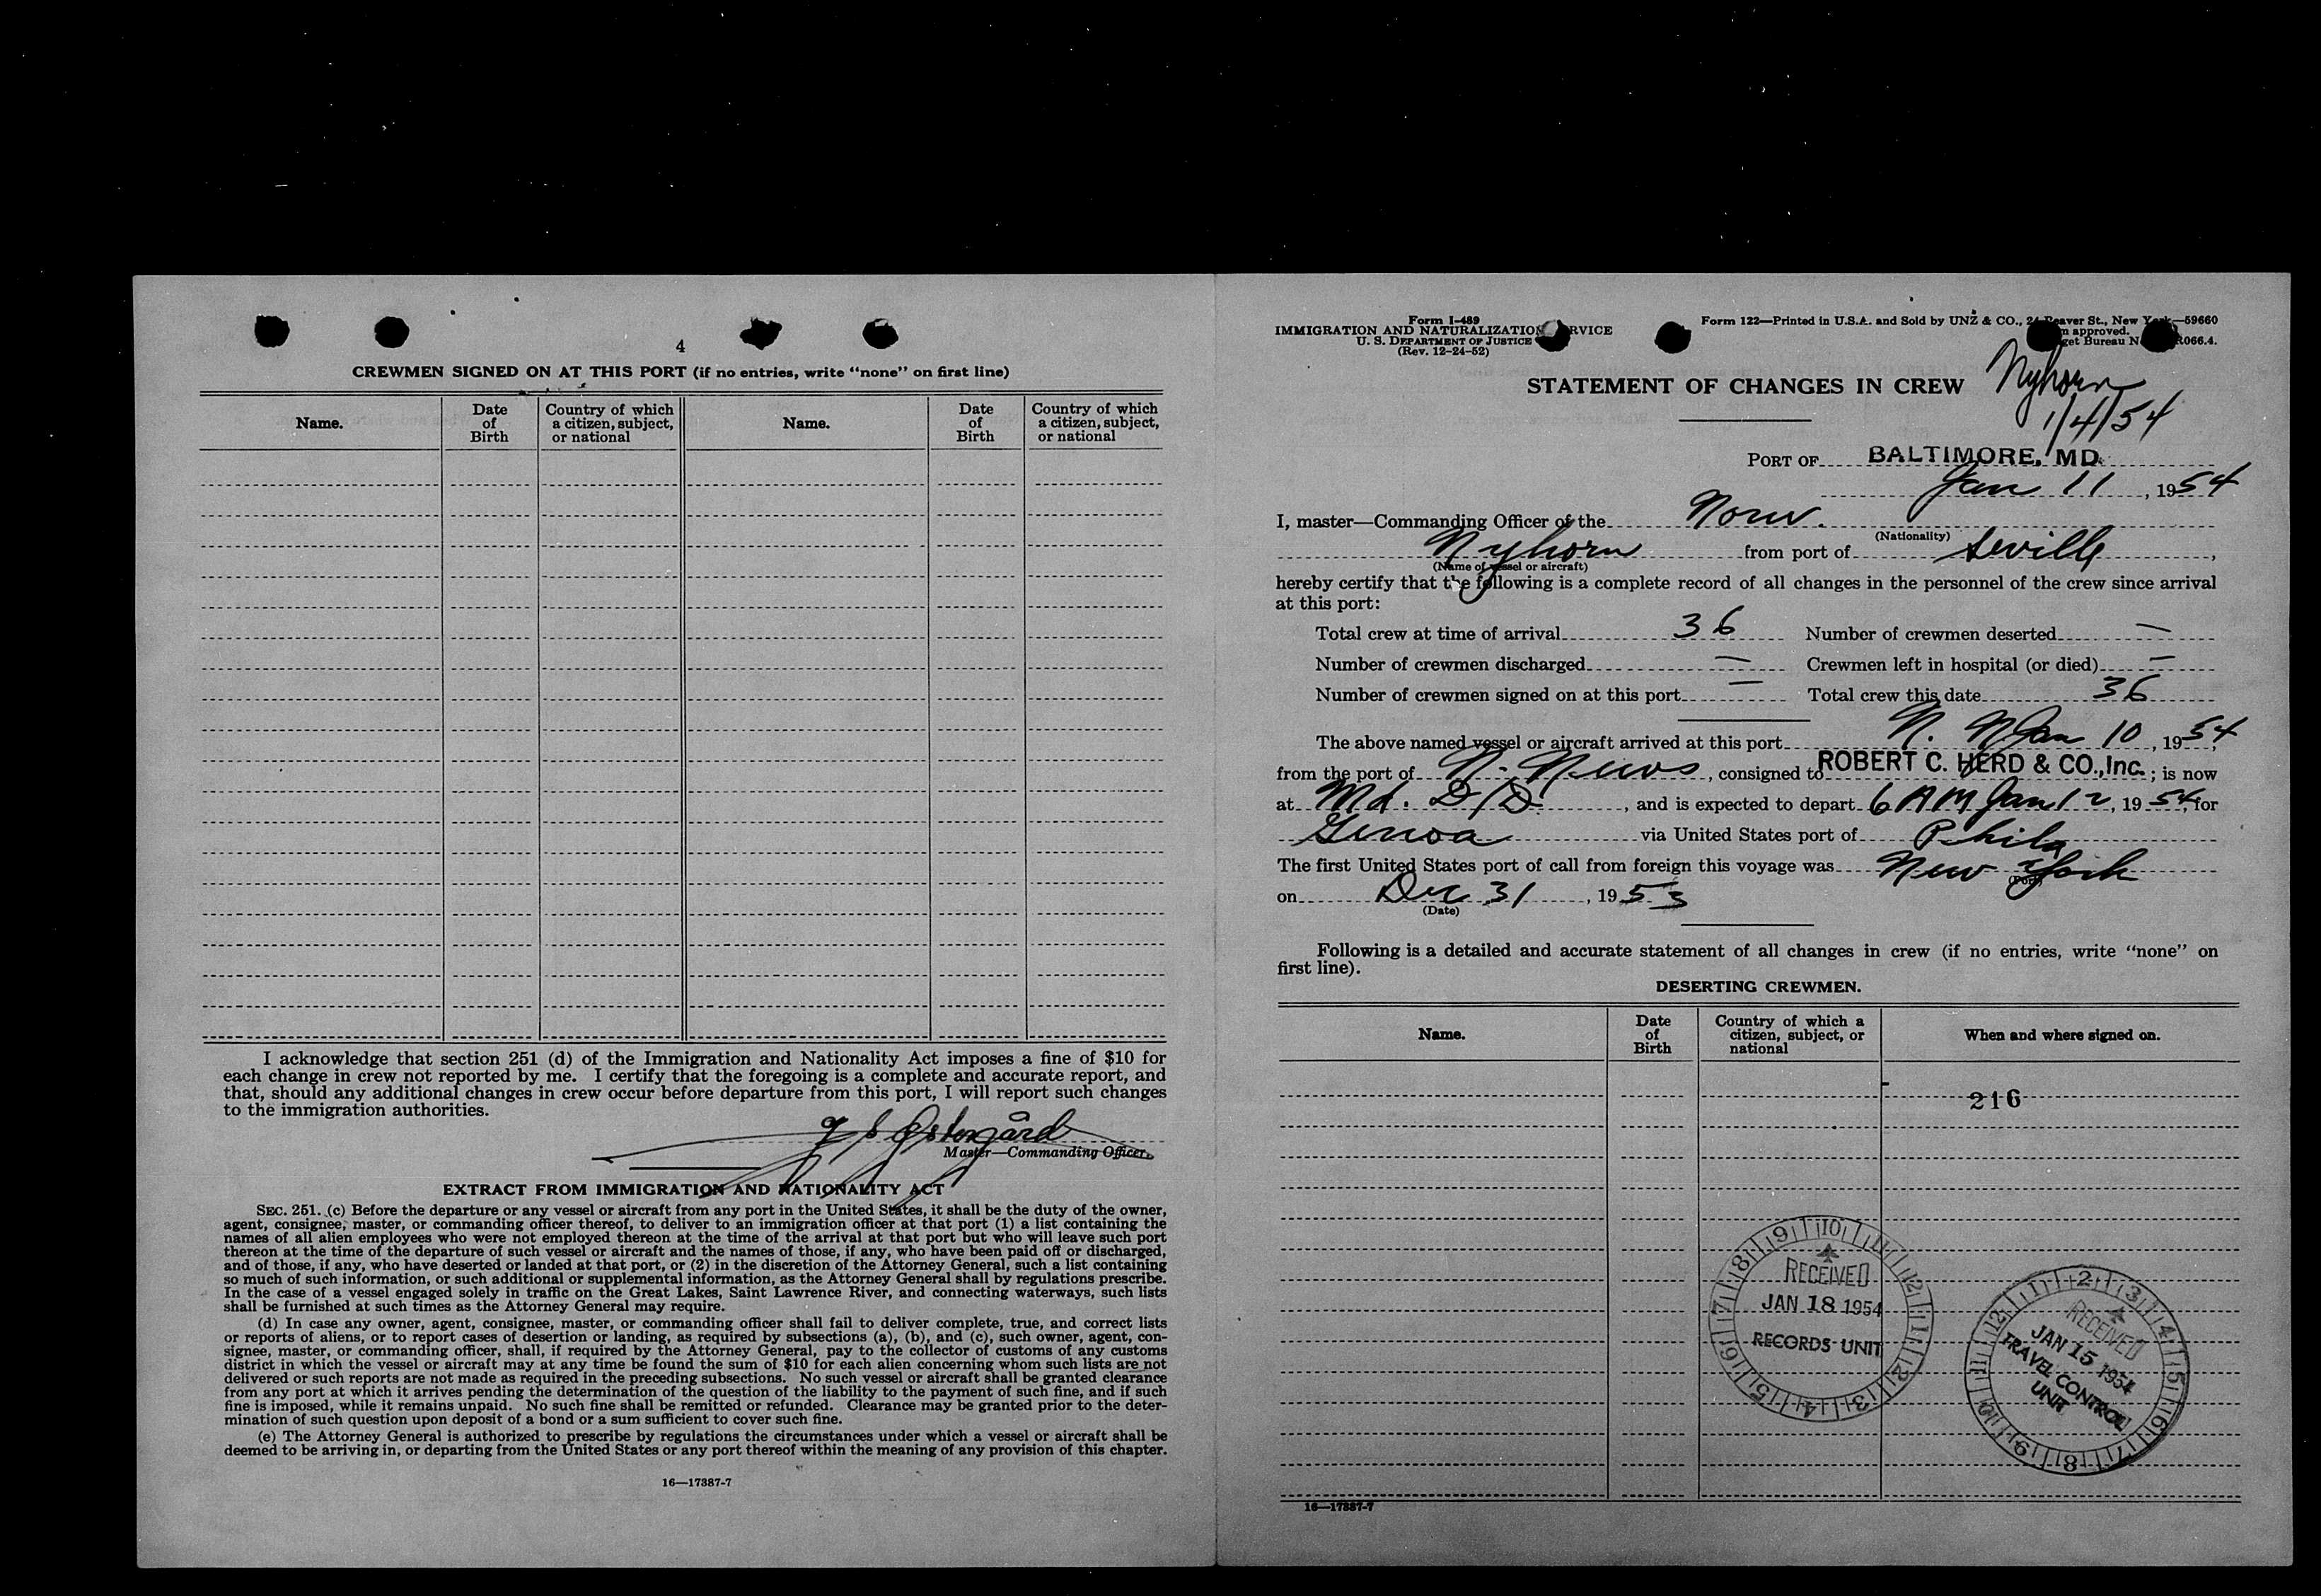 4
CREWMEN SIGNED ON AT THIS PORT (if no entries, write "none" on first line)
Name.
Date
of
Birth
Country of which
a citizen, subject,
or national
Name.
Date
of
Birth
Country of which
a citizen, subject,
or national
I acknowledge that section 251 (d) of the Immigration and Nationality Act imposes a fine of $10 for
each change in crew not reported by me. I certify that the foregoing is a complete and accurate report, and
that, should any additional changes in crew occur before departure from this port, I will report such changes
to the immigration authorities.
Østergård
Master—Commanding Officer.
EXTRACT FROM IMMIGRATION AND NATIONALITY ACT
SEC. 251. (c) Before the departure or any vessel or aircraft from any port in the United States, it shall be the duty of the owner,
agent, consignee, master, or commanding officer thereof, to deliver to an immigration officer at that port (1) a list containing the
names of all alien employees who were not employed thereon at the time of the arrival at that port but who will leave such port
thereon at the time of the departure of such vessel or aircraft and the names of those, if any, who have been paid off or discharged,
and of those, if any, who have deserted or landed at that port, or (2) in the discretion of the Attorney General, such a list containing
so much of such information, or such additional or supplemental information, as the Attorney General shall by regulations prescribe.
In the case of a vessel engaged solely in traffic on the Great Lakes, Saint Lawrence River, and connecting waterways, such lists
shall be furnished at such times as the Attorney General may require.
(d) In case any owner, agent, consignee, master, or commanding officer shall fail to deliver complete, true, and correct lists
or reports of aliens, or to report cases of desertion or landing, as required by subsections (a), (b), and (c), such owner, agent, con-
signee, master, or commanding officer, shall, if required by the Attorney General, pay to the collector of customs of any customs
district in which the vessel or aircraft may at any time be found the sum of $10 for each alien concerning whom such lists are not
delivered or such reports are not made as required in the preceding subsections. No such vessel or aircraft shall be granted clearance
from any port at which it arrives pending the determination of the question of the liability to the payment of such fine, and if such
fine is imposed, while it remains unpaid. No such fine shall be remitted or refunded. Clearance may be granted prior to the deter-
mination of such question upon deposit of a bond or a sum sufficient to cover such fine.
(e) The Attorney General is authorized to prescribe by regulations the circumstances under which a vessel or aircraft shall be
deemed to be arriving in, or departing from the United States or any port thereof within the meaning of any provision of this chapter.
16—17387-7
Form I-489
IMMIGRATION AND NATURALIZATION SERVICE
U. S. DEPARTMENT OF JUSTICE
(Rev. 12-24-52)
Form 122—Printed in U.S.A. and Sold by UNZ & CO., 24 Beaver St., New York—59660
approved.
Bureau R066.4.
STATEMENT OF CHANGES IN CREW
Nyhorn
1/4/54
PORT OF BALTIMORE, MD.
Jan 11, 1954
I, master—Commanding Officer of the Norw.
(Nationality)
Nyhorn from port of Seville,
(Name of vessel or aircraft)
hereby certify that the following is a complete record of all changes in the personnel of the crew since arrival
at this port:
Total crew at time of arrival 36 Number of crewmen deserted —
Number of crewmen discharged — Crewmen left in hospital (or died) —
Number of crewmen signed on at this port — Total crew this date 36
The above named vessel or aircraft arrived at this port N. N Jan 10, 1954,
from the port of N. News, consigned to ROBERT C. HERD & CO., Inc.; is now
at Md. D/D, and is expected to depart 6 AM Jan 12, 1954, for
Genoa via United States port of Phila
The first United States port of call from foreign this voyage was New York
(Port)
on Dec 31, 1953
(Date)
Following is a detailed and accurate statement of all changes in crew (if no entries, write "none" on
first line).
DESERTING CREWMEN.
Name.
Date
of
Birth
Country of which a
citizen, subject, or
national
When and where signed on.
216
9 10 11 12 1 2 3 4 5 6 7 8
RECEIVED
JAN 18 1954
RECORDS UNIT
12 1 2 3 4 5 6 7 8 9 10 11
RECEIVED
JAN 15 1954
TRAVEL CONTROL
UNIT
16—17387-7